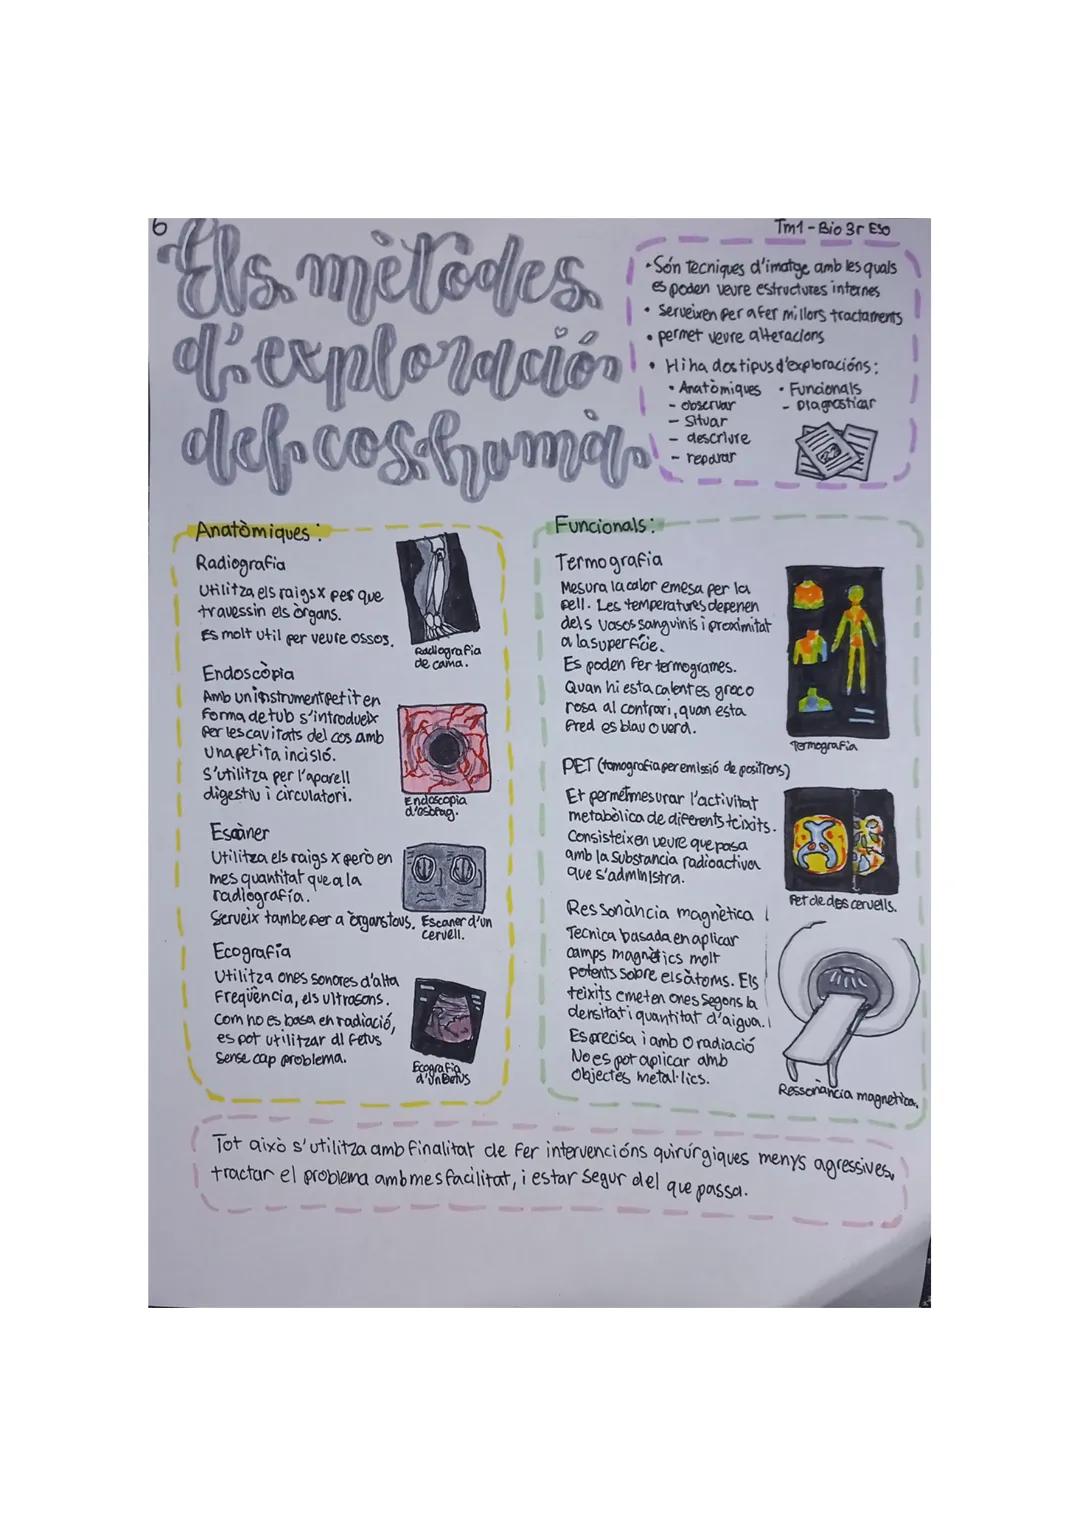 6
Tm1 - Bio 3r ESO
Els mètodes
d'exploració
del cos humà
• Són tècniques d'imatge amb les quals
es poden veure estructures internes
• Serveixen per a fer millors tractaments
• permet veure alteracions
• Hi ha dos tipus d'exploracións:
• Anatòmiques
- observar
- Situar
- descriure
- reparar
• Funcionals
- Diagnosticar
Anatòmiques:
Radiografia
Utilitza els raigs x per que
travessin els òrgans.
Es molt util per veure ossos.
Radiografia
de cama.
Endoscòpia
Amb un instrument petit en
forma de tub s'introdueix
per les cavitats del cos amb
una petita incisió.
S'utilitza per l'aparell
digestiu i circulatori.
Endoscopia
d'esòfag.
Escàner
Utilitza els raigs x però en
mes quantitat que a la
radiografia.
Serveix tambe per a òrgans tous.
Escaner d'un
cervell.
Ecografia
Utilitza ones sonores d'alta
Freqüència, els ultrasons.
Com no es basa en radiació,
es pot utilitzar al fetus
sense cap problema.
Ecografia
d'un fetus
Funcionals:
Termografia
Mesura la calor emesa per la
pell. Les temperatures depenen
dels vasos sanguinis i proximitat
a la superfície.
Es poden fer termogrames.
Quan hi esta calent es groc o
rosa al contrari, quan esta
Fred es blau o verd.
Termografia
PET (tomografia per emissió de positrons)
Et permet mesurar l'activitat
metabòlica de diferents teixits.
Consisteix en veure que passa
amb la substancia radioactiva
que s'administra.
Pet de dos cervells.
Ressonància magnètica
Tecnica basada en aplicar
camps magnètics molt
potents sobre els àtoms. Els
teixits emeten ones segons la
densitat i quantitat d'aigua.
Es precisa i amb 0 radiació
No es pot aplicar amb
objectes metal·lics.
Ressonància magnetica.
Tot això s'utilitza amb finalitat de fer intervencións quirúrgiques menys agressives,
tractar el problema amb mes facilitat, i estar segur del que passa.